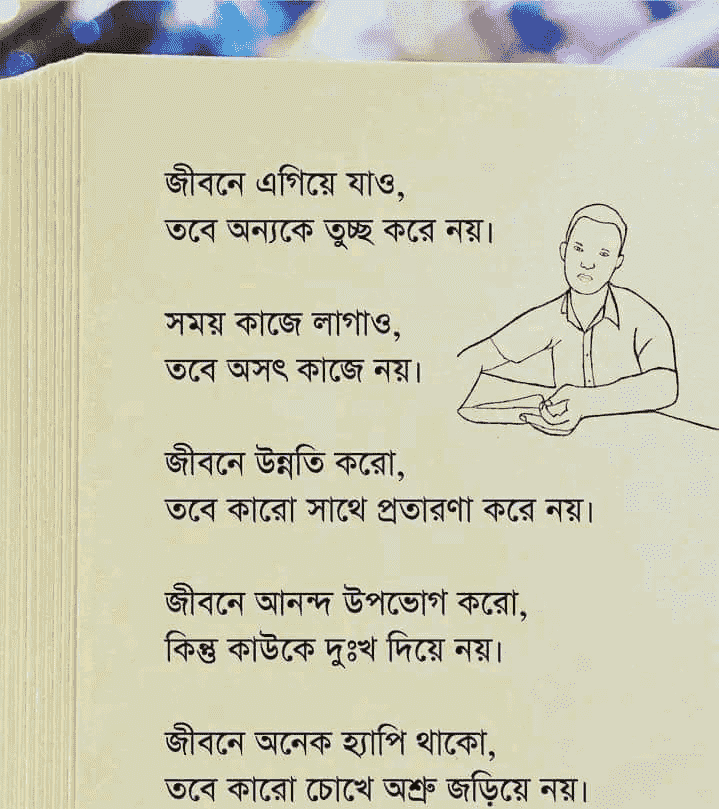 জীবনে এগিয়ে যাও,
তবে অন্যকে তুচ্ছ করে নয়।
সময় কাজে লাগাও,
তবে অসৎ কাজে নয়।
জীবনে উন্নতি করো,
তবে কারো সাথে প্রতারণা করে নয়।
জীবনে আনন্দ উপভোগ করো,
কিন্তু কাউকে দুঃখ দিয়ে নয়।
জীবনে অনেক হ্যাপি থাকো,
তবে কারো চোখে অশ্রু জড়িয়ে নয়।